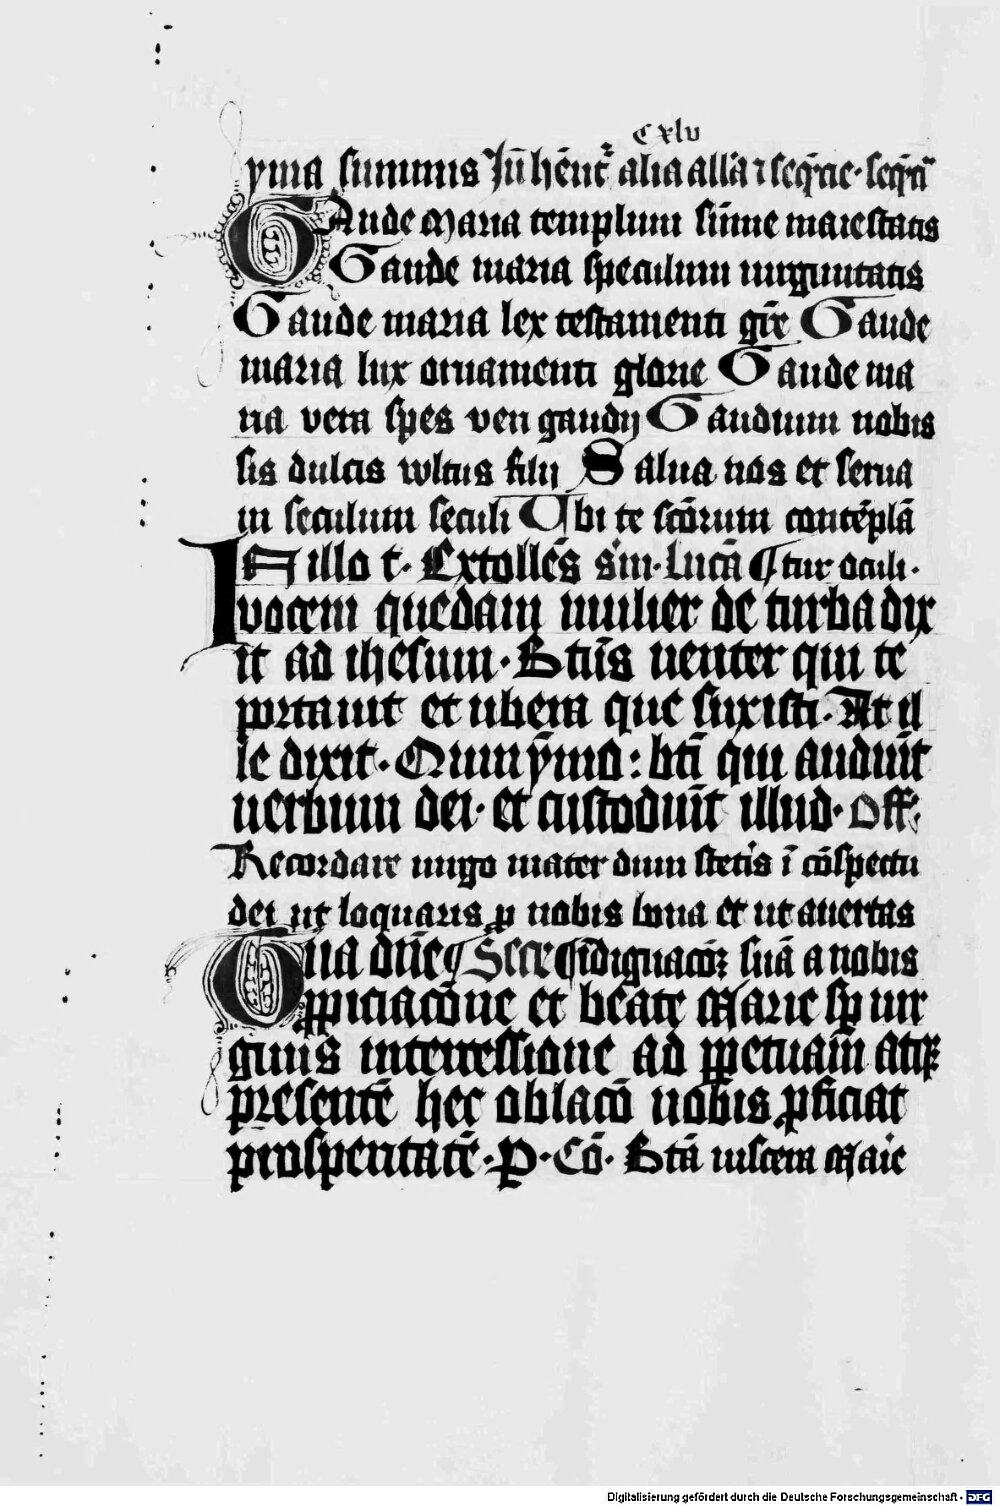 Cxlv
yma summis Iñ hẽnt᷑ alia allã ⁊ seq̃ncie · seq̃n̄
GAude Maria templum sũme maiestatis
Gaude maria speculum uirginitatis
Gaude maria lex testamenti grẽ Gaude
maria lux ornamenti glorie Gaude ma
ria vera spes veri gaudij Gaudium nobis
sis dulcis vvltus filij Salua nos et serua
in seculum seculi Ubi te scõrum contẽplã
IN illo t · Extollẽs sm̃ · Lucã ¶ tur oculi ·
vocem quedam mulier de turba dix
it ad ihesum · Btũs uenter qui te
portauit et ubera que suxisti · At il
le dixit · Quin ỹmo : bt̃i qui audiũt
uerbum dei · et custodiũt illud · Off̃
Recordare uirgo mater dum stetis ĩ cõspectu
dei ut loquaris ꝓ nobis bona et ut auertas
TUa dñe ¶ Secr̃ ¶ ĩdignacõꝫ suã a nobis
ꝓpiciacõne et beate Marie sp̱ uir
ginis intercessione ad ꝑpetuam̃ atqꝫ
presentẽ hec oblacõ nobis ꝓficiat
prosperitatẽ · P · Cõ · Btã uiscera Maie